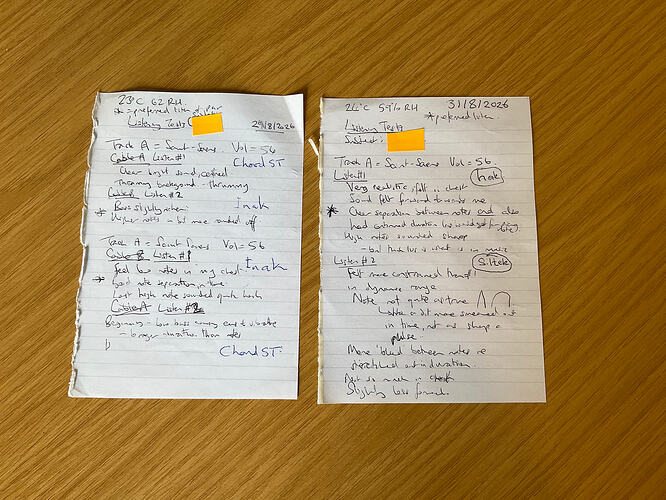 23°C 62 RH
* = preferred listen of
Listening Tests
29/8/2026
Track A = Saint-Saens Vol = 56
Cable A Listen #1 Chord ST
Clear bright sound, defined
Thrumming background - thrumming
Listen #2 Inak
* Bass slightly richer
Higher notes - bit more rounded off
Track A = Saint Saens Vol = 56
Listen #1 Inak
Feel low notes in my chest
* Good note separation, in time
Last high note sounded quite harsh
Cable A Listen #2
Beginning - low bass
- longer duration than notes
Chord ST
24°C 59% RH 31/8/2026
* preferred listen
Listening Tests
Subject:
Track A = Saint-Saens Vol = 56.
Listen #1 Inak
Very realistic, felt in chest
Sound felt forward towards me
* Clear separation between notes and also
had contained duration
High notes sounded sharp
- but think this is what is in music
Listen #2 Siltek
Felt more constrained than #1
in dynamic range
Note not quite as true
a bit more smeared out
in time, not as sharp a
pulse.
More 'bleed' between notes ie
stretched out in duration.
Not so much in chest
Slightly less forward.